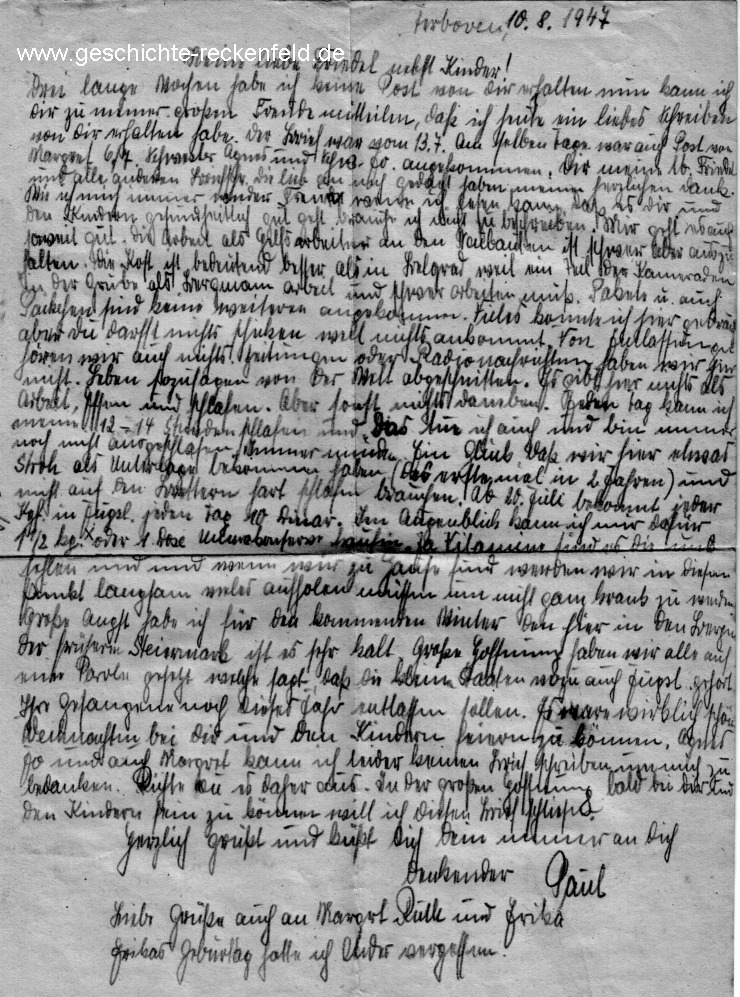 Terboven, 10.8.1947
www.geschichte-reckenfeld.de
Meine liebe Friedel nebst Kinder!
Drei lange Wochen habe ich keine Post von dir erhalten nun kann ich
dir zu meiner großen Freude mitteilen, daß ich heute ein liebes Schreiben
von dir erhalten habe. Der Brief war vom 13.7. Am selben Tage war auch Post von
Margret 6/7. Schwester Agnes und Schw. Jo. angekommen. Dir meine lb. Friedel
und alle anderen die lieb an mich gedacht haben meinen herzlichen Dank.
Wie ich mich immer wieder freue wenn ich lesen kann, daß es dir und
den Kindern gesundheitlich gut geht brauche ich nicht zu beschreiben. Mir geht es auch
soweit gut. Die Arbeit als Hilfsarbeiter an den ist schwer aber auszu
halten. Die Kost ist bedeutend besser als in Belgrad weil ein Teil der Kameraden
In der Grube als Bergmann arbeit und schwer arbeiten muß. Pakete u. auch
Päckchen sind keine weiteren angekommen. Vieles könnte ich hier gebrauch
aber du darfst nichts schicken weil nichts ankommt. Von Entlassung
hören wir auch nichts. Zeitungen oder Radionachrichten haben wir hier
nicht. Leben sozusagen von der Welt abgeschnitten. Es gibt hier nichts als
Arbeit, Essen und schlafen. Aber sonst nichts daneben. Jeden Tag kann ich
meine 12 – 14 Stunden schlafen und das tue ich auch und bin immer
noch nicht ausgeschlafen, immer müde. Ein Glück daß wir hier etwas
Stroh als Unterlage bekommen haben (das erste mal in 2 Jahren) und
nicht auf den Brettern hart schlafen brauchen. Ab 20. Juli bekommt jeder
Kgf. in Jugsl. jeden Tag 10 Dinar. Im Augenblick kann ich mir dafür
1 1/2 kg. x oder 1 Dose kaufen. Ja Vitamine sind es die uns
fehlen und und wenn wir zu Hause sind werden wir in diesem
Punkt langsam vieles aufholen müssen um nicht ganz krank zu werden
Große Angst habe ich für den kommenden Winter den hier in den Bergen
der früheren Steiermark ist es sehr kalt. Große Hoffnung haben wir alle auf
eine Parole gesetzt welche sagt, daß die kleinen Staaten wozu auch Jugsl. gehört
Ihre Gefangene noch dieses Jahr entlassen sollen. Es wäre wirklich schön
Weihnachten bei dir und den Kindern feiern zu können. Agnes
Jo und auch Margret kann ich leider keinen Brief schreiben um mich zu
bedanken. Richte du es daher aus. In der großen Hoffnung bald bei dir und
den Kindern sein zu können will ich diesen Brief schließen.
Herzlich grüßt und küßt dich dein immer an dich
denkender Paul
Liebe Grüße auch an Margrt Ruth und Erika
Erikas Geburtag hatte ich leider vergessen.